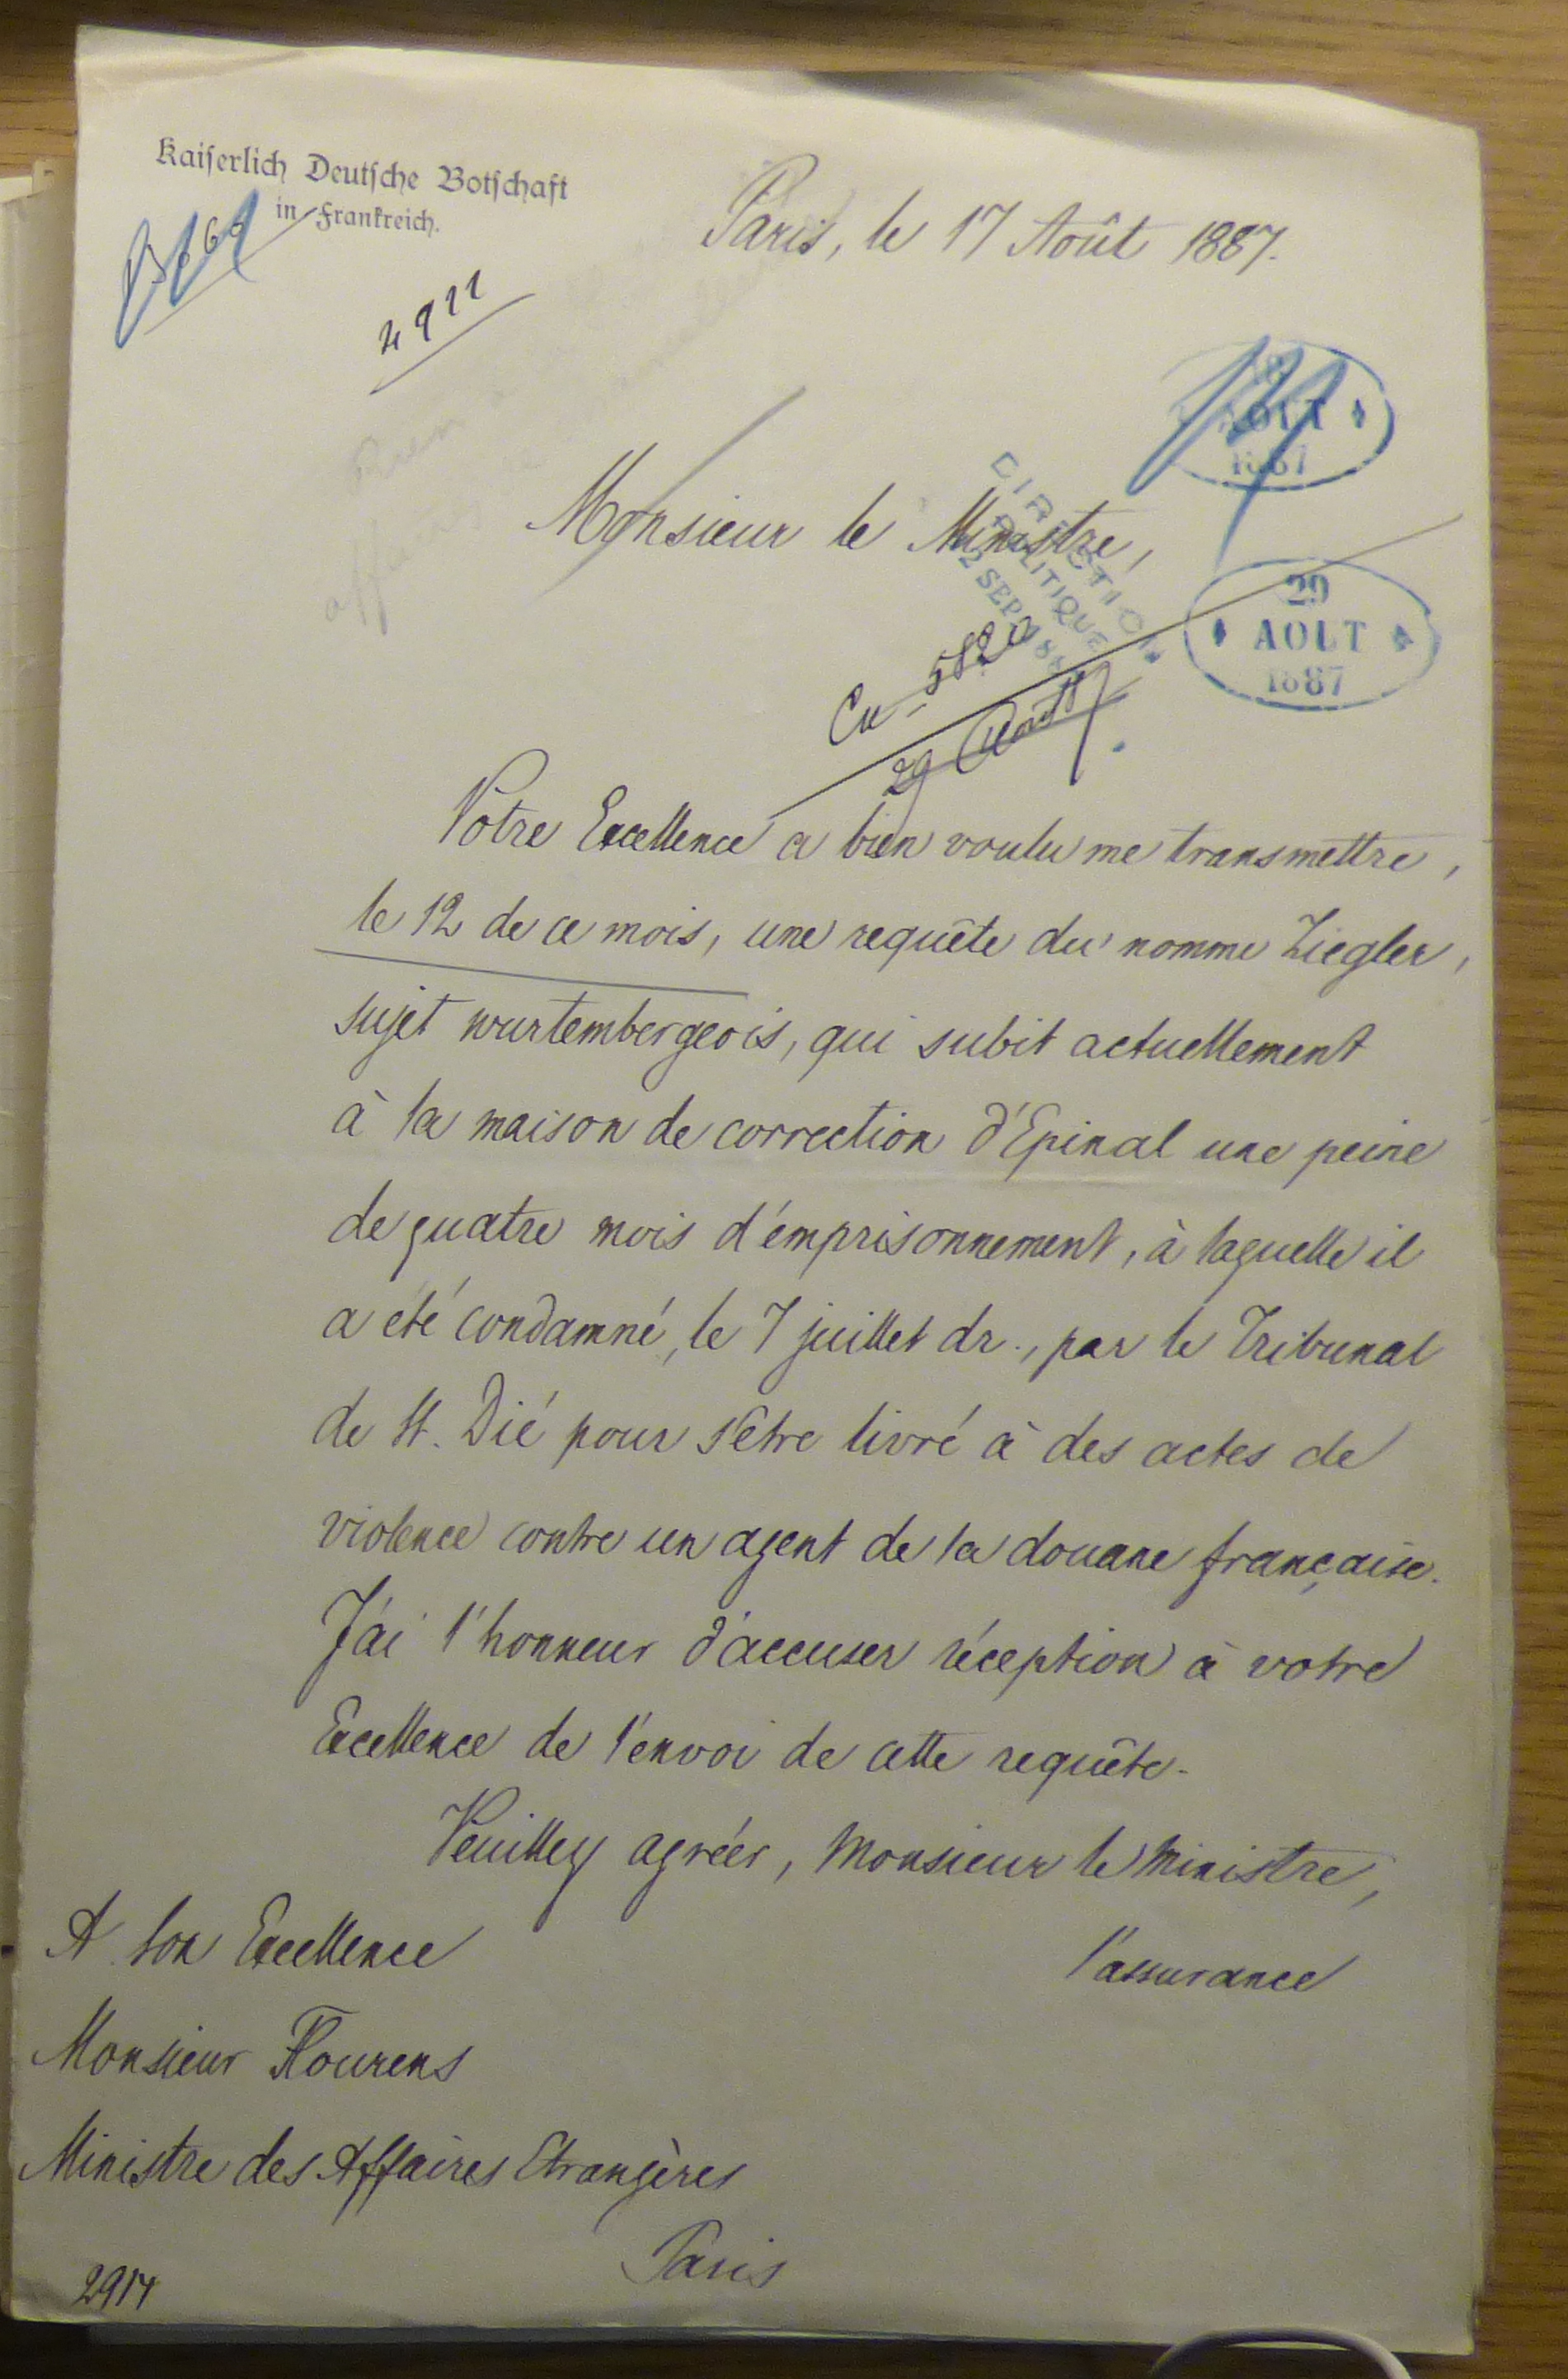 Kaiserlich Deutsche Botschaft
in Frankreich.
Paris, le 17 Août 1887.
4911
AOUT
1887
Monsieur le Ministre,
DIRECTION
POLITIQUE
2 SEPT
29
AOUT
1887
29 Août
Votre Excellence a bien voulu me transmettre,
le 12 de ce mois, une requête du nomme Ziegler,
sujet wurtembergeois, qui subit actuellement
à la maison de correction d'Epinal une peine
de quatre mois d'émprisonnement, à laquelle il
a été condamné, le 7 juillet dr., par le Tribunal
de St. Dié pour s'être livré à des actes de
violence contre un agent de la douane française.
J'ai l'honneur d'accuser réception à votre
Excellence de l'envoi de cette requête.
Veuillez agréer, Monsieur le Ministre,
l'assurance
A Son Excellence
Monsieur Flourens
Ministre des Affaires Etrangères
Paris
2914